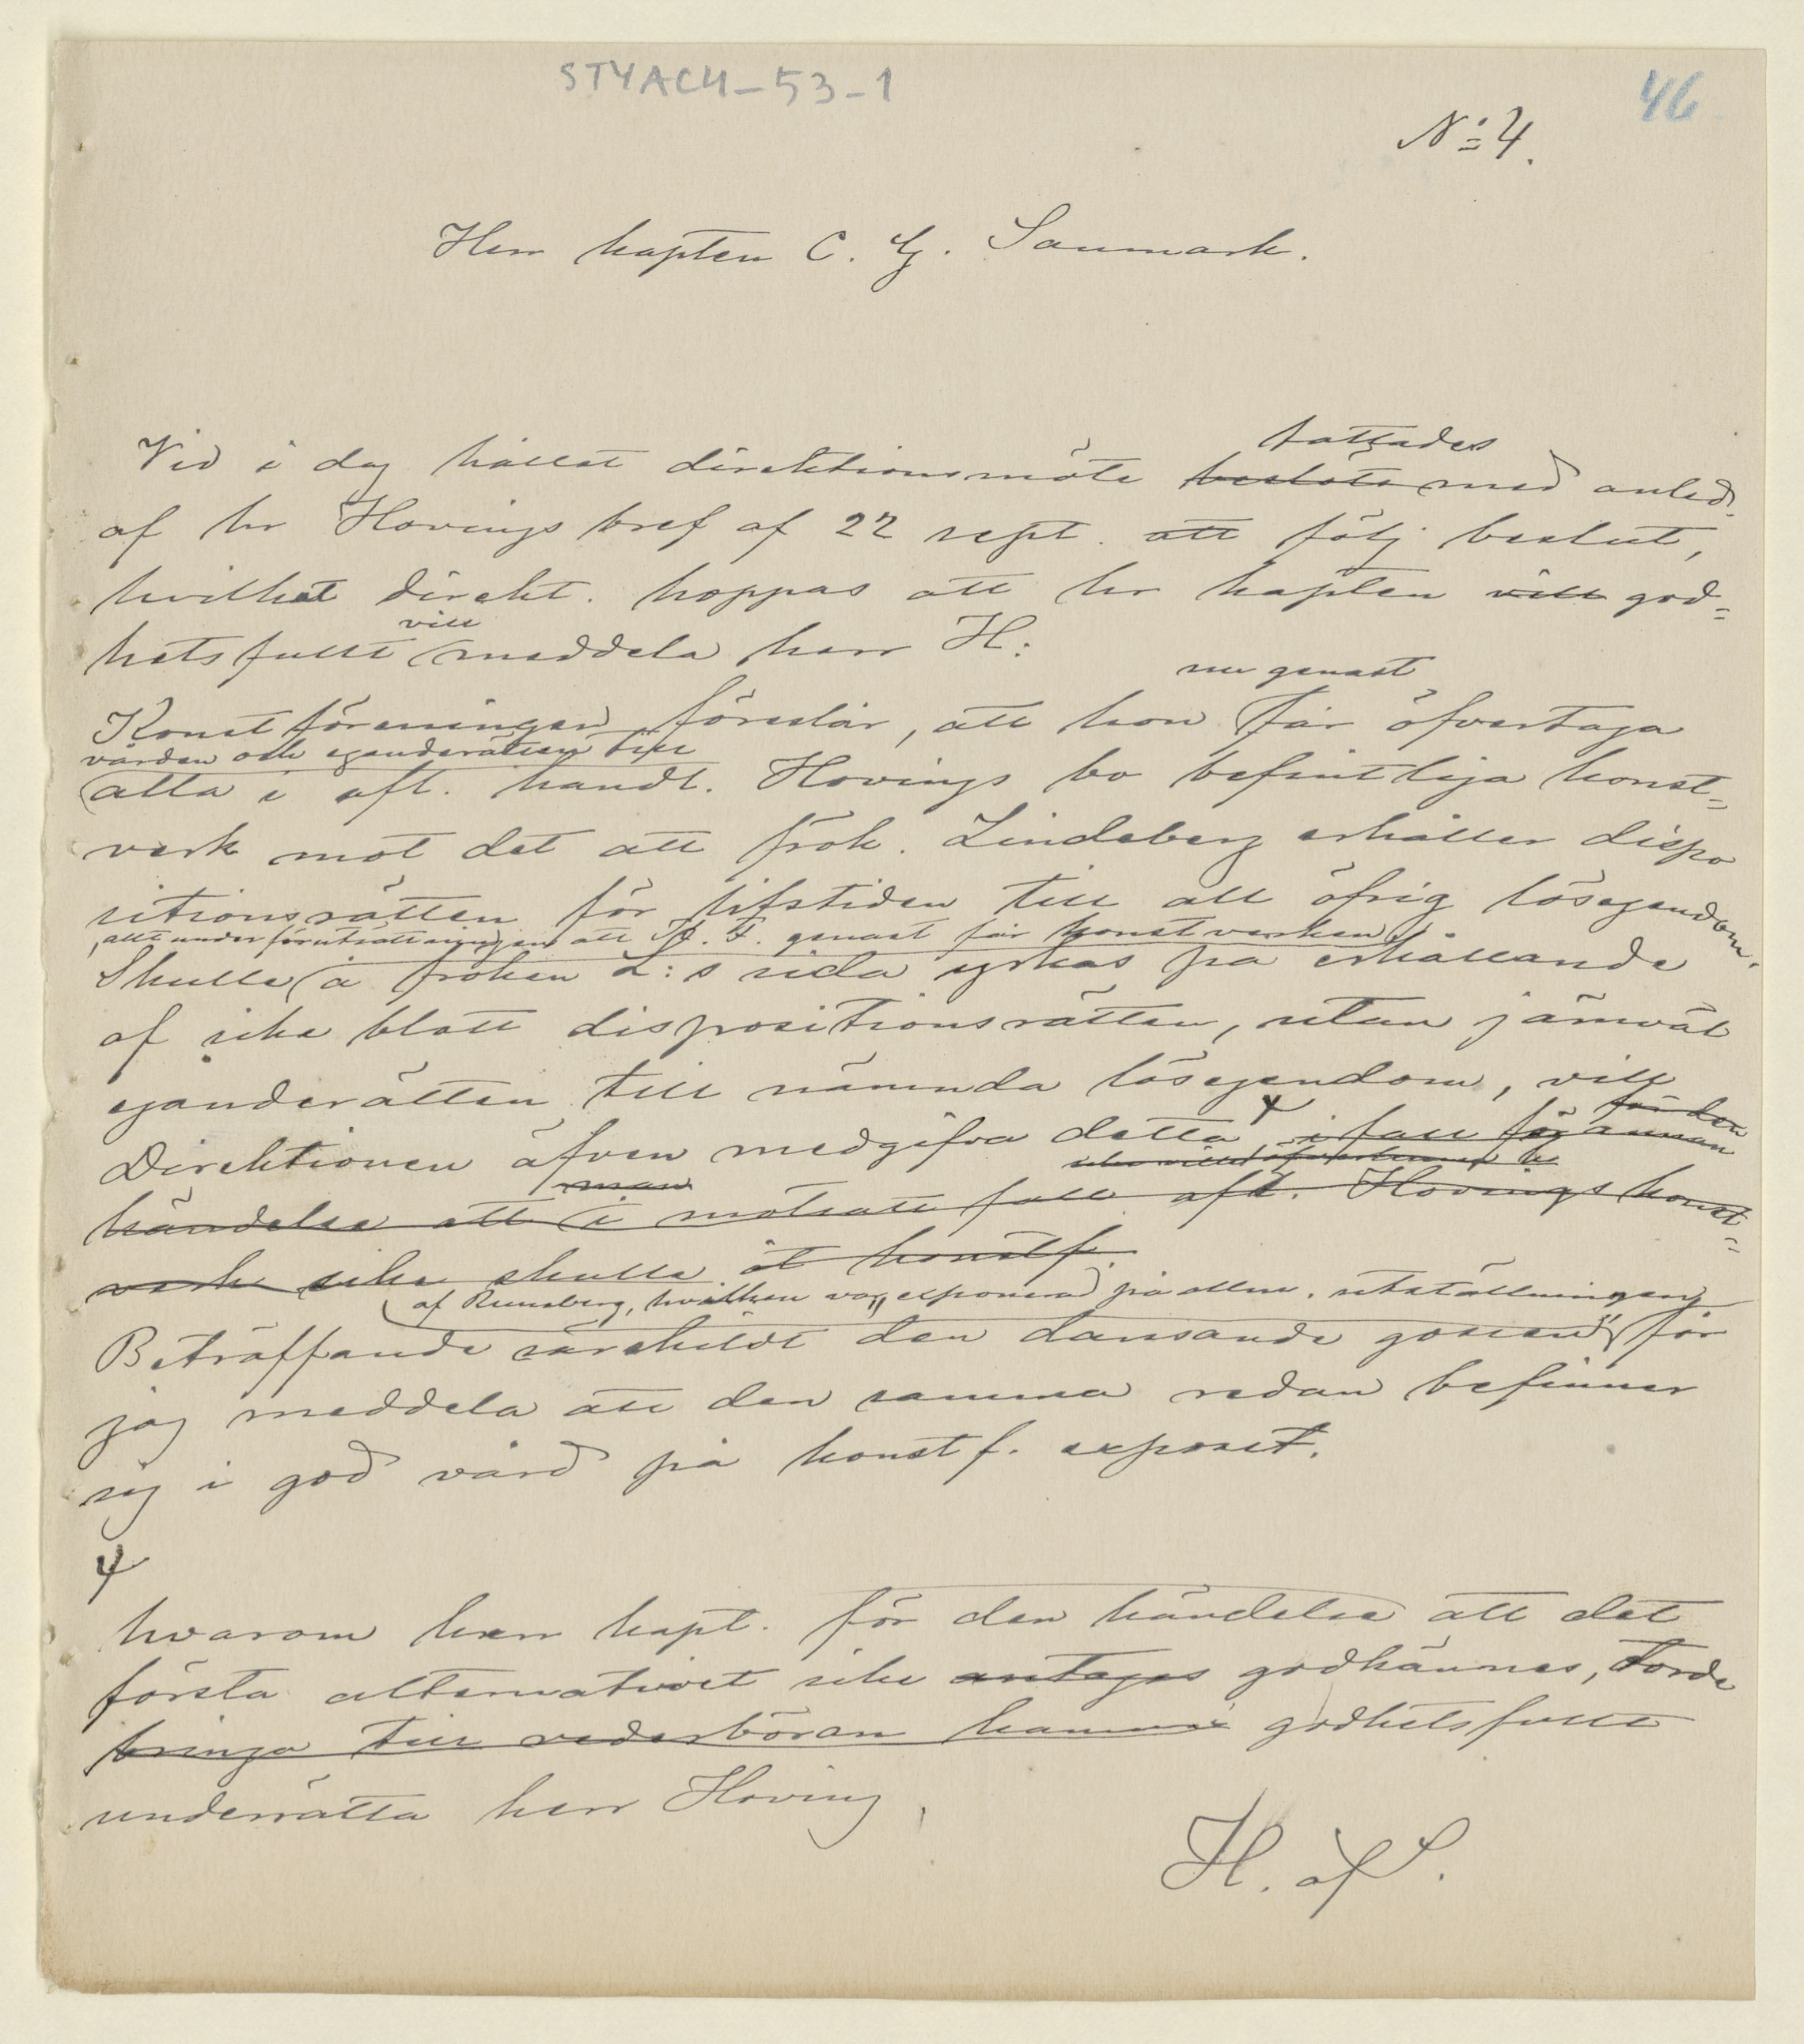 STYACU-53-1
46
No: 4.
Herr kapten C. G. Sanmark.
fattades
Vid i dag hållet direktionsmöte beslöts med anled.
af hr Hovings bref af 22 sept. att följ beslut,
hvilket direkt. hoppas att hr kapten vill god=
hetsfullt vill meddela herr H:
nu genast
Konstföreningen föreslår, att hon får öfvertaga
vården och eganderätten till
alla i afl. handl. Hovings bo befintliga konst=
verk mot det att frök. Lindeberg erhåller dispo
sitionsrätten för lifstiden till all öfrig lösegendom.
, allt under förutsättningen att K. F. genast får konstverken,
Skulle å fröken L:s sida yrkas på erhållande
af icke blott dispositionsrätten, utan jämväl
eganderätten till nämnda lösegendom, vill
Direktionen äfven medgifva detta i fall för annan
för den
händelse att i motsatt fall afl. Hovings konst=
man
verk icke skulle åt konstf.
af Runeberg, hvilken var exponerad på allm. utställningen
Beträffande särskildt "den dansande gossen" får
jag meddela att den samma redan befinner
sig i god vård på konstf. exposit.
hvarom herr kapt. för den händelse att det
första alternativet icke antages godkännes, torde
bringa till vederböran kännˢ godhetsfullt
underrätta herr Hoving,
H. af S.